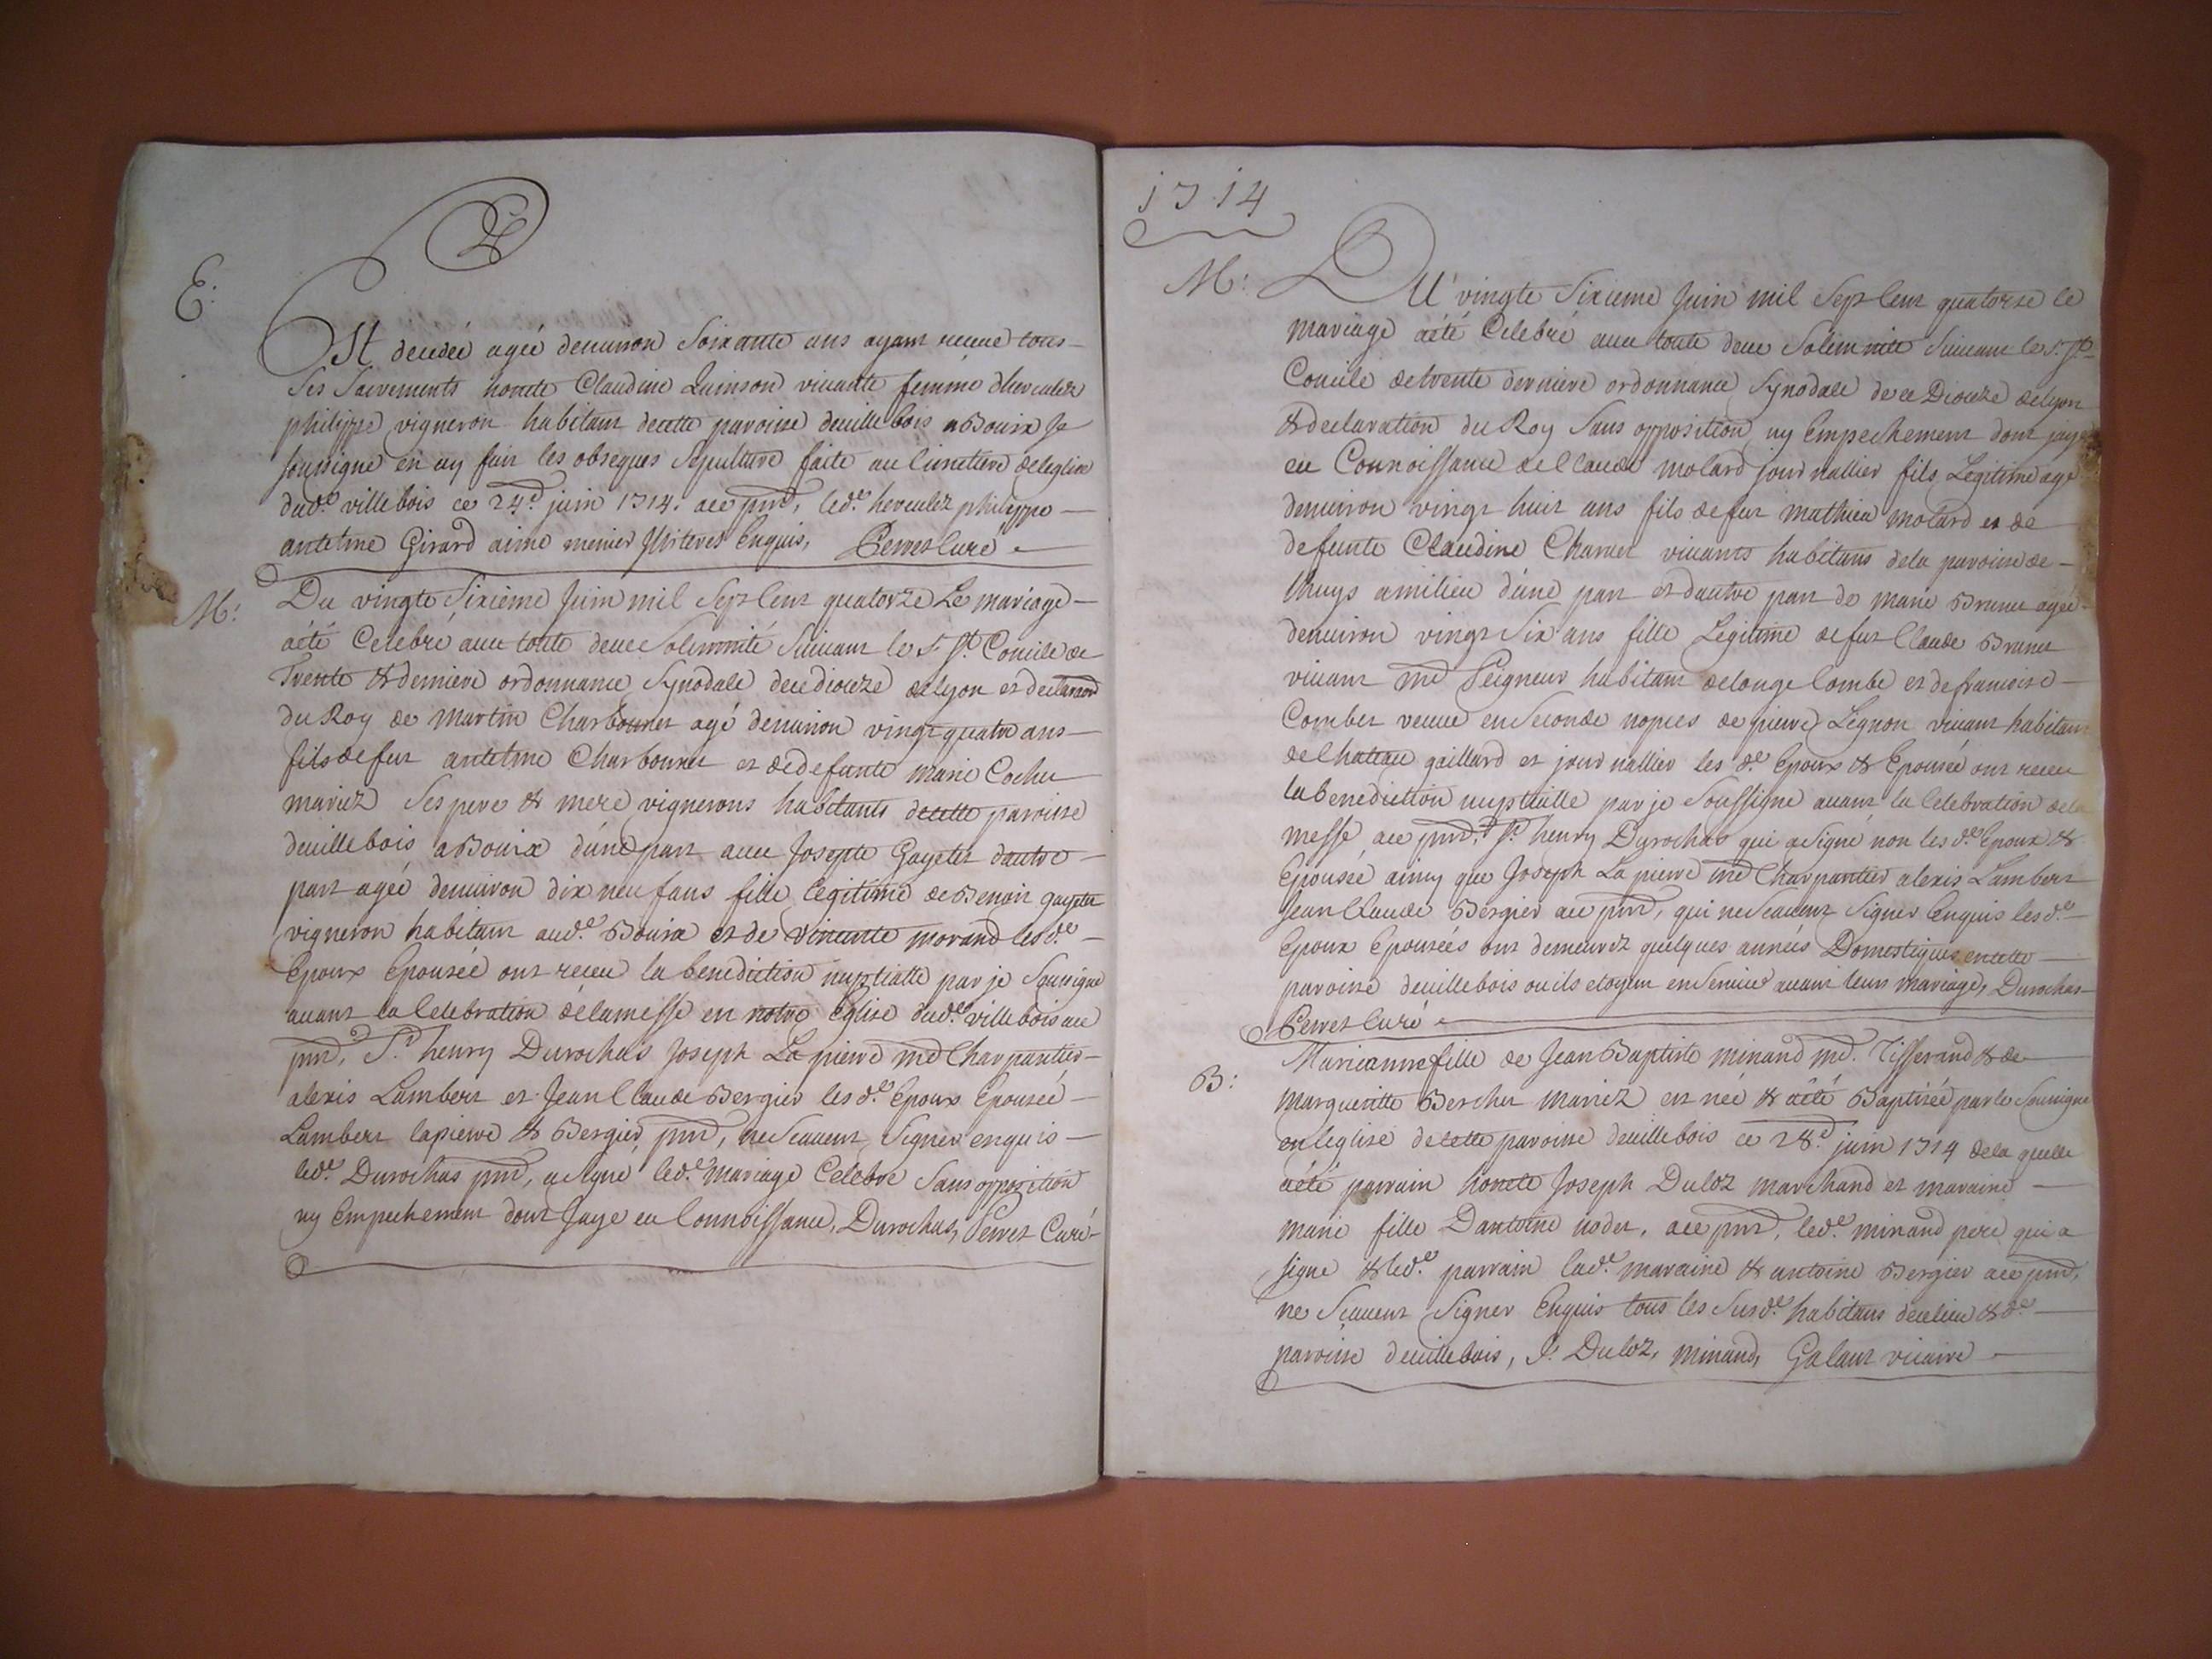 E:
Est decedéé agéé denuiron Soixante ans ayant receue tous
Ses Sacrements honete Claudine Quinson viuante femme dherculez
philippe vigneron habitant decette paroisse deuillebois a Bouix Je
soussigné en ay fair les obseques Sepulture faite au Cimetiere deleglise
dud.e villebois ce 24.e juin 1714. ace pnt, led.e herculez philippe
antelme Girard aimé menier Enquis, Perret Curé
M:
Du vingte Sixieme Juin mil Sept Cent quatorze Le mariage
aété Celebré auec toute deue Solemnité Suiuant le S. St. Concile de
Trente & derniere ordonnance Synodale decediocéze delyon et declaraon
du Roy de Martin Charbonnet agé denuiron vingt quatre ans
fils defut antelme Charbonnet et dedefunte marie Cochet
mariez Ses pere & mere vignerons habitants decette paroisse
deuillebois a Bouix d'une part auec Josepte Gayetet dautre
part agéé denuiron dix neufans fille legitime de Benoit gayetet
vigneron habitant aud.e Bouix et de Vincente morand les d.e
Epoux Epouséé ont receu la benediction nuptialle par je Soussigné
auant la Celebration delamesse en notre Eglise dud.e villebois ace
pnt, Sr. henry Durochas Joseph La pierre md Charpantier
alexis Lambert et Jean Claude Bergier les d.e Epoux Epouséé
Lambert lapierre & Bergier pnt, ne Scauent Signer enquis
led.e Durochas pnt, a signé led.e mariage Celebré Sans opposition
ny Empechement dont Jaye eu Connoissance, Durochas, Perret Curé
1714
M:
DU vingte Sixieme Juin mil Sept Cent quatorze le
mariage aété Celebré auec toute deue Solemnité Suiuant le S. St.
Concile detrente derniere ordonnance Synodale de ce Diocéze delyon
& declaration du Roy Sans opposition ny Empechement dont jaye
eu Connoissance de Claude molard journallier fils Legitime agé
denuiron vingt huit ans fils defut mathieu molard et de
defunte Claudine Charuet viuants habitans dela paroisse de
thuys amilieu d'une part et dautre part de marie Brunet agéé
denuiron vingt Six ans fille Legitime defut Claude Brunet
viuant md Peigneur habitant delonge Combe et defrancoise
Combet veuue en Seconde nopces de pierre Legnon viuant habitant
de Chateau gaillard et journallier les d.e Epoux & Epouséé ont receu
la benediction nuptialle par je Soussigné auant la Celebration dela
messe ace pnt, Sr. henry Durochas qui a Signé non les d.e Epoux &
Epouséé ainsy que Joseph La pierre md Charpantier alexis Lambert
Jean Claude Bergier ace pnt, qui ne Scauent Signer Enquis les d.e
Epoux Epouséés ont demeurez quelques annéés Domestiques encette
paroisse deuillebois ou ils etoyent en Seruice auant leur mariage, Durochas
Perret Curé
B:
Marianne fille de Jean Baptiste minand md. Tisserand & de
margueritte Berchet mariez est néé & aété Baptiséé par le Soussigné
en leglise decette paroisse deuillebois ce 28.e juin 1714 dela quelle
aété parrain honete Joseph Duloz marchand et maraine
marie fille Dantoine nodet, ace pnt, led.e minand pere qui a
signé & led.e parrain lad.e maraine & antoine Bergier ace pnt,
ne Scauent Signer Enquis tous les Sus d.e habitans decelieu & d.e
paroisse deuillebois, J. Duloz, minand, Galant vicaire